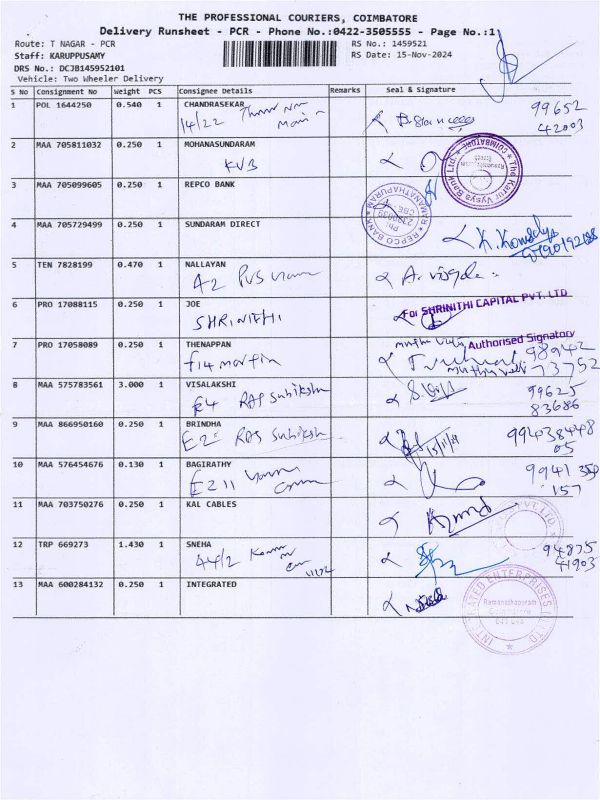 THE PROFESSIONAL COURIERS, COIMBATORE
Delivery Runsheet - PCR - Phone No.:0422-3505555 - Page No.:1
Route: T NAGAR - PCR
RS No.: 1459521
Staff: KARUPPUSAMY
RS Date: 15-Nov-2024
DRS No.: DCJB145952101
Vehicle: Two Wheeler Delivery
S No Consignment No Weight PCS Consignee Details Remarks Seal & Signature
1 POL 1644250 0.540 1 CHANDRASEKAR
14/22
99652
42003
2 MAA 705811032 0.250 1 MOHANASUNDARAM
KVB
The Karur Vysya Bank Ltd.
COIMBATORE
3 MAA 705099605 0.250 1 REPCO BANK
REPCO BANK
RAMANATHAPURAM
4 MAA 705729499 0.250 1 SUNDARAM DIRECT
5 TEN 7828199 0.470 1 NALLAYAN
A2
6 PRO 17088115 0.250 1 JOE
SHRINITHI
For SHRINITHI CAPITAL PVT. LTD
Authorised Signatory
7 PRO 17058089 0.250 1 THENAPPAN
f14 martin
98942
73752
8 MAA 575783561 3.000 1 VISALAKSHI
E4 RAJ Subiksha
99625
83686
9 MAA 866950160 0.250 1 BRINDHA
E2 RAJ Subiksha
99438448
05
10 MAA 576454676 0.130 1 BAGIRATHY
E211
9941 350
157
11 MAA 703750276 0.250 1 KAL CABLES
12 TRP 669273 1.430 1 SNEHA
44/2
94875
41903
13 MAA 600284132 0.250 1 INTEGRATED
INTEGRATED ENTERPRISES
Ramanathapuram
Coimbatore